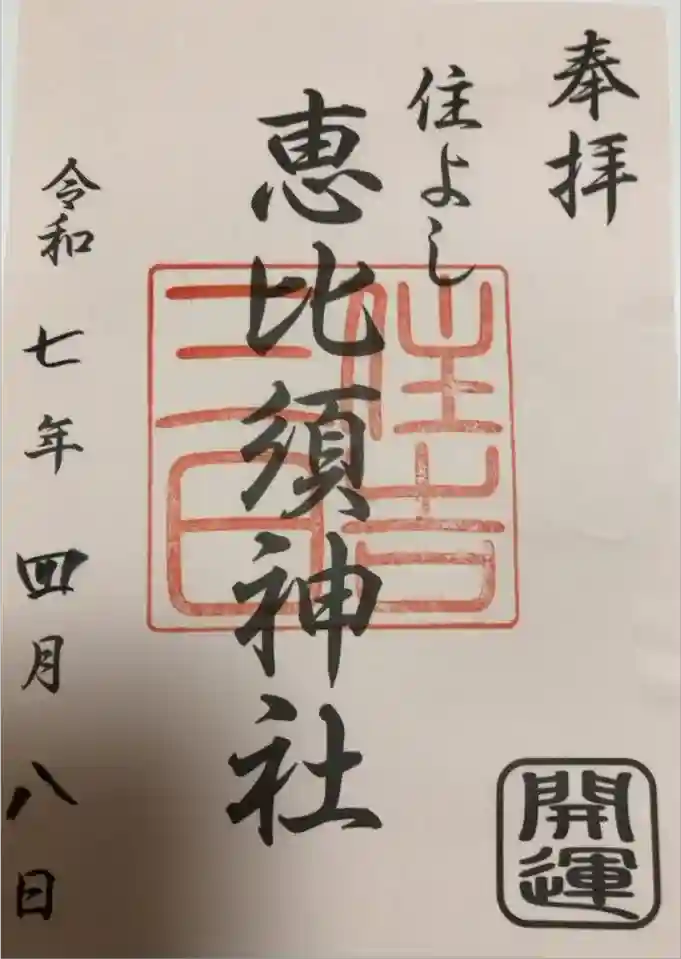 奉拝
住よし
恵比須神社
住吉
三日
令和七年四月八日
開運